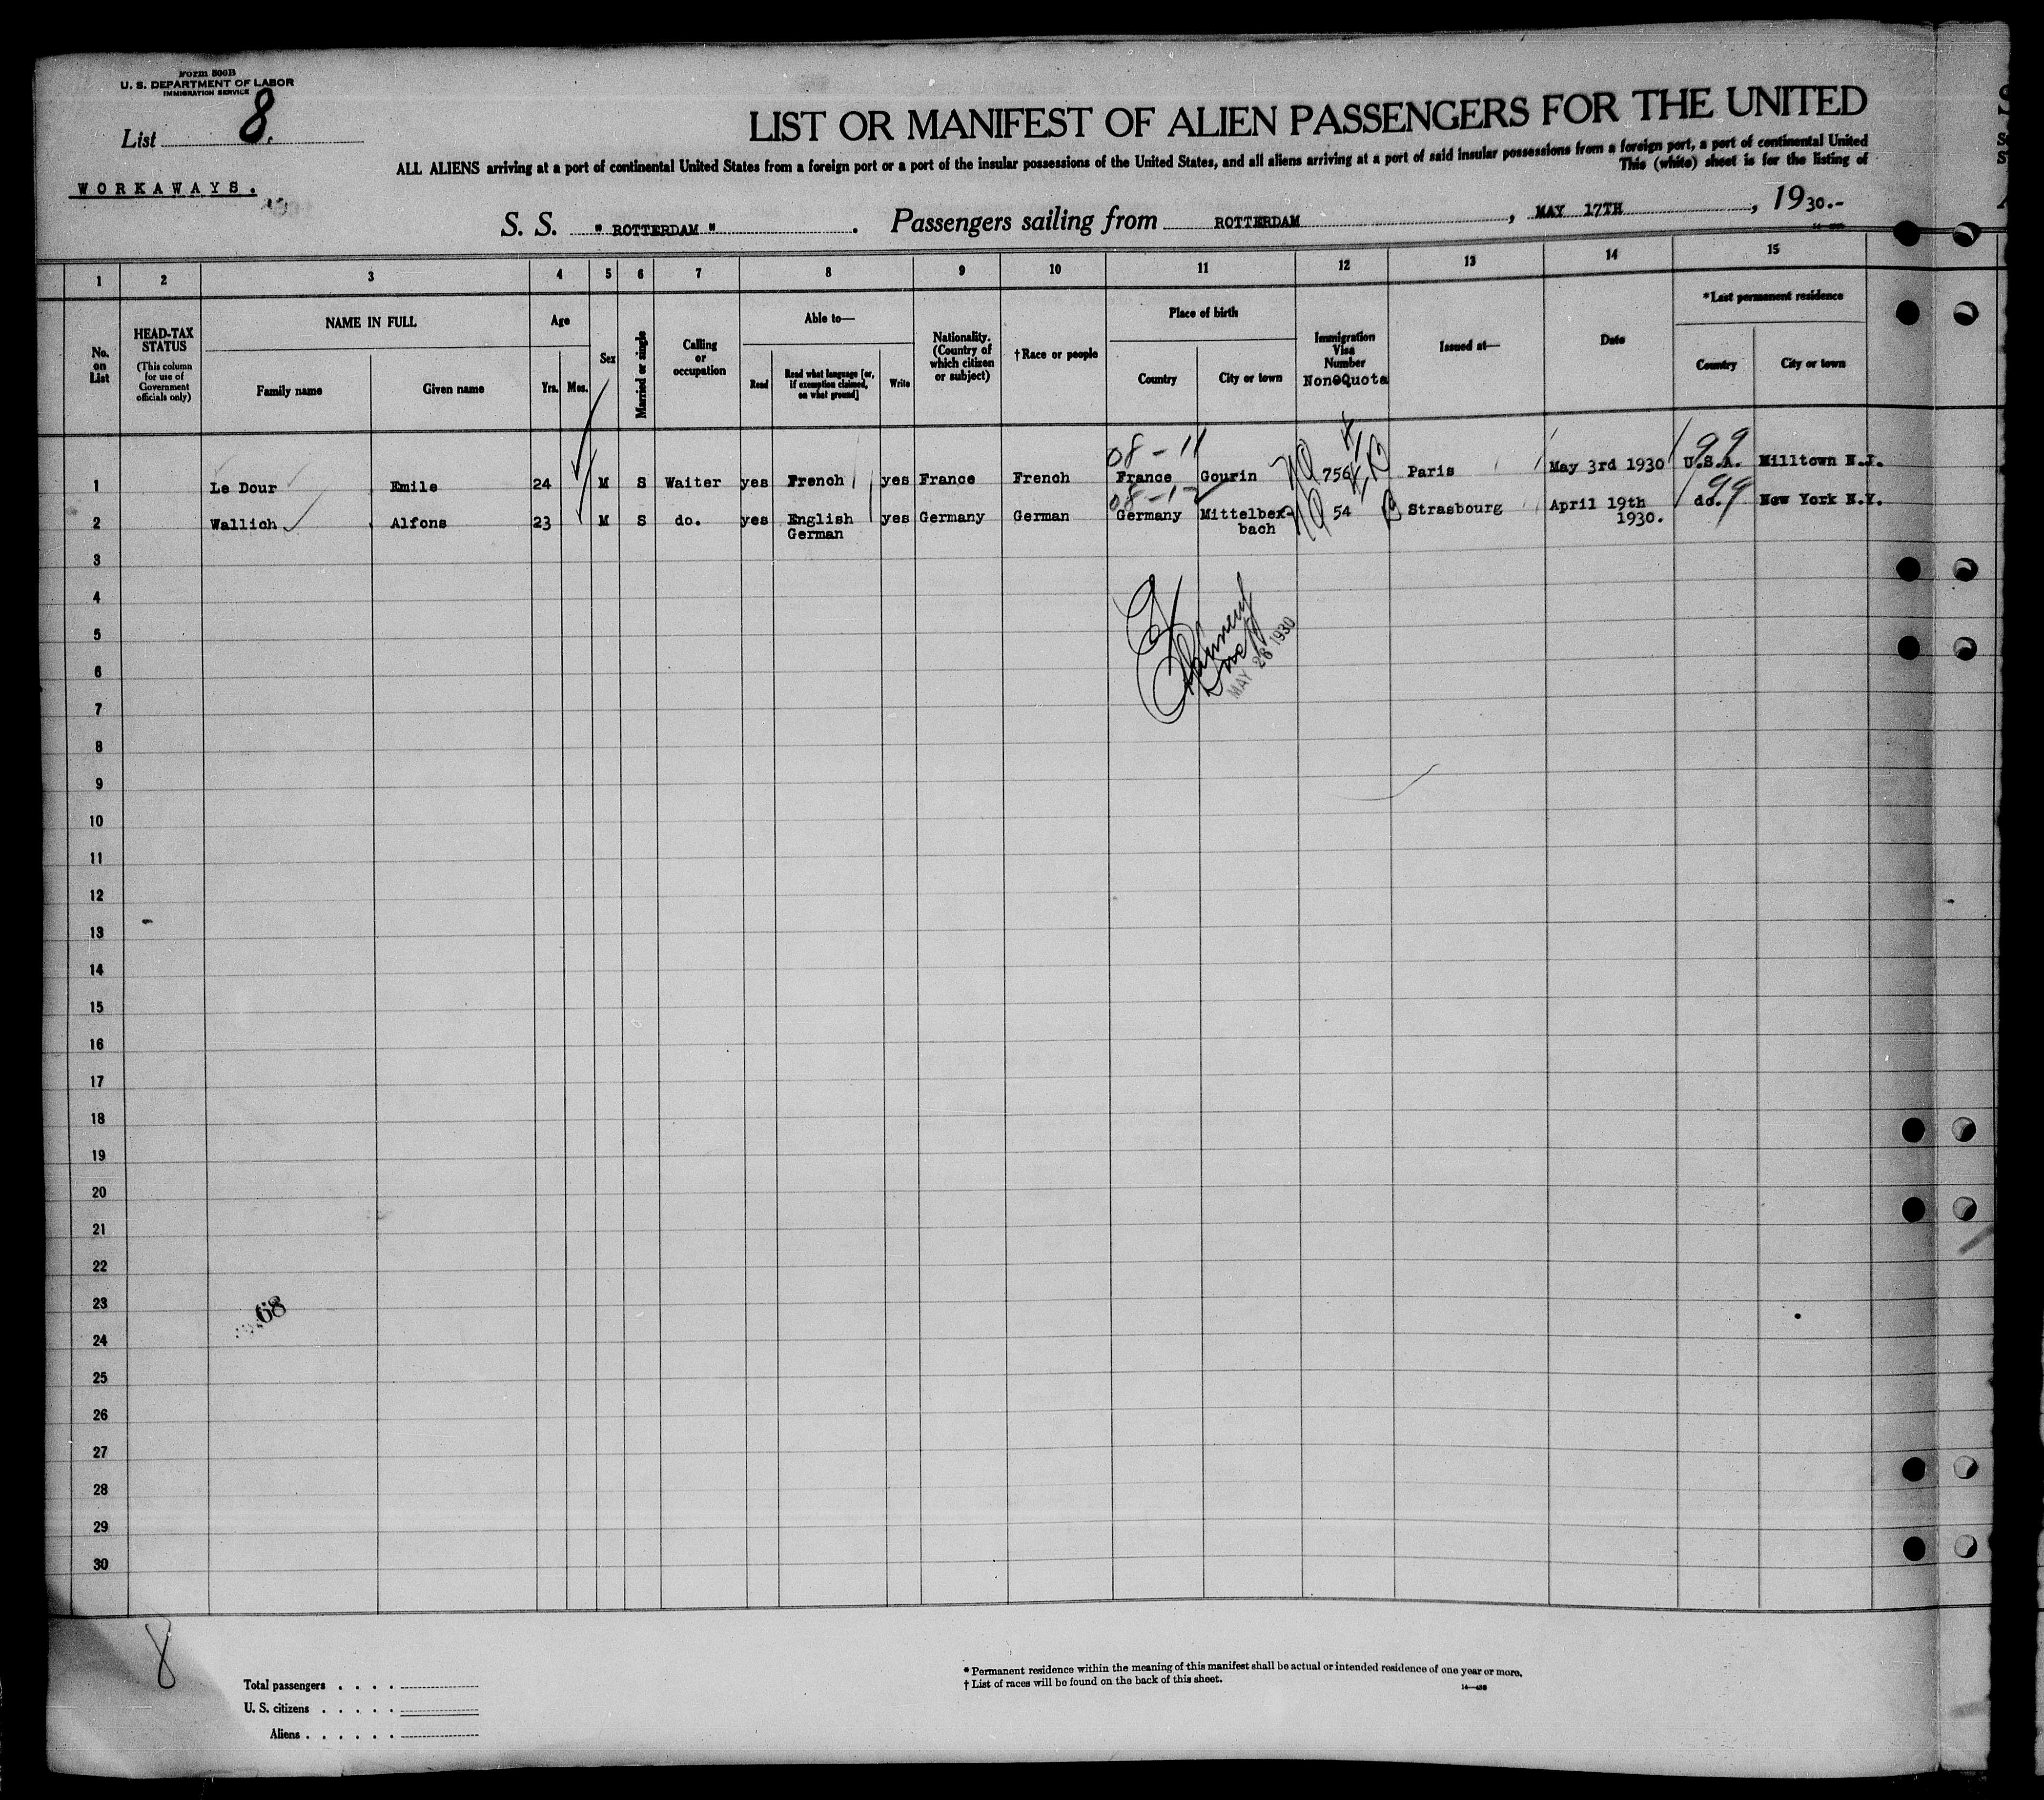 Form 500B
U. S. DEPARTMENT OF LABOR
IMMIGRATION SERVICE
List 8.
WORKAWAYS.
LIST OR MANIFEST OF ALIEN PASSENGERS FOR THE UNITED
ALL ALIENS arriving at a port of continental United States from a foreign port or a port of the insular possessions of the United States, and all aliens arriving at a port of said insular possessions from a foreign port, a port of continental United
This (white) sheet is for the listing of
S. S. " ROTTERDAM ". Passengers sailing from ROTTERDAM, MAY 17TH, 1930.-
1 2 3 4 5 6 7 8 9 10 11 12 13 14 15
No. on List
HEAD-TAX STATUS
(This column for use of Government officials only)
NAME IN FULL
Family name Given name
Age
Yrs. Mos.
Sex
Married or single
Calling or occupation
Able to—
Read Read what language [or, if exemption claimed, on what ground] Write
Nationality. (Country of which citizen or subject)
†Race or people
Place of birth
Country City or town
Immigration Visa Number
NonQuota
Issued at—
Date
*Last permanent residence
Country City or town
08-11 99
1 Le Dour Emile 24 M S Waiter yes French yes France French France Gourin NQ 756 Paris May 3rd 1930 U.S.A. Milltown N.J.
08-1 99
2 Wallich Alfons 23 M S do. yes English yes Germany German Germany Mittelbex- NQ 54 Strasbourg April 19th do. New York N.Y.
German bach 1930.
3
4
5
6
MAY 28 1930
7
8
9
10
11
12
13
14
15
16
17
18
19
20
21
22
23
68
24
25
26
27
28
29
30
8
Total passengers . . . .
U. S. citizens . . . . .
Aliens . . . . . .
* Permanent residence within the meaning of this manifest shall be actual or intended residence of one year or more.
† List of races will be found on the back of this sheet.